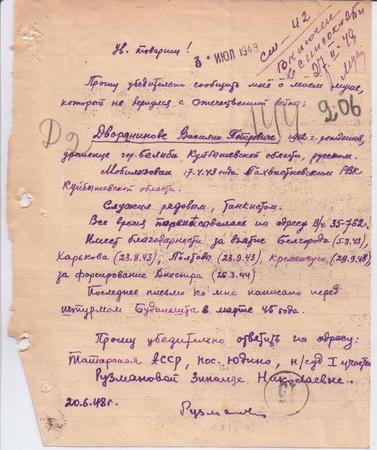 Ув. товарищ!
3 ИЮЛ 1948
Прошу убедительно сообщить мне о моем муже,
который не вернулся с Отечественной войны:
206
Д2
Дворднинове Василии Петровиче, 1912 г. рождения,
уроженце гор. Белибей Куйбышевской области, русском.
Мобилизован 17.4.43 года Похвистневским РВК
Куйбышевской области.
Служил рядовым, танкистом.
Все время по адресу В/ч 35-762.
Имеет благодарности за взятие Белгорода (5.8.43),
Харькова (23.8.43), Полтава (23.9.43), Кременчуга (29.9.43),
за форсирование Днестра (25.3.44)
Последнее письмо ко мне написано перед
штурмом Будапешта в марте 45 года.
Прошу убедительно ответить по адресу:
Татарская АССР, пос. Юдино, н/суд I участка
Рузмановой Зинаиде Николаевне.
20.6.48 г.